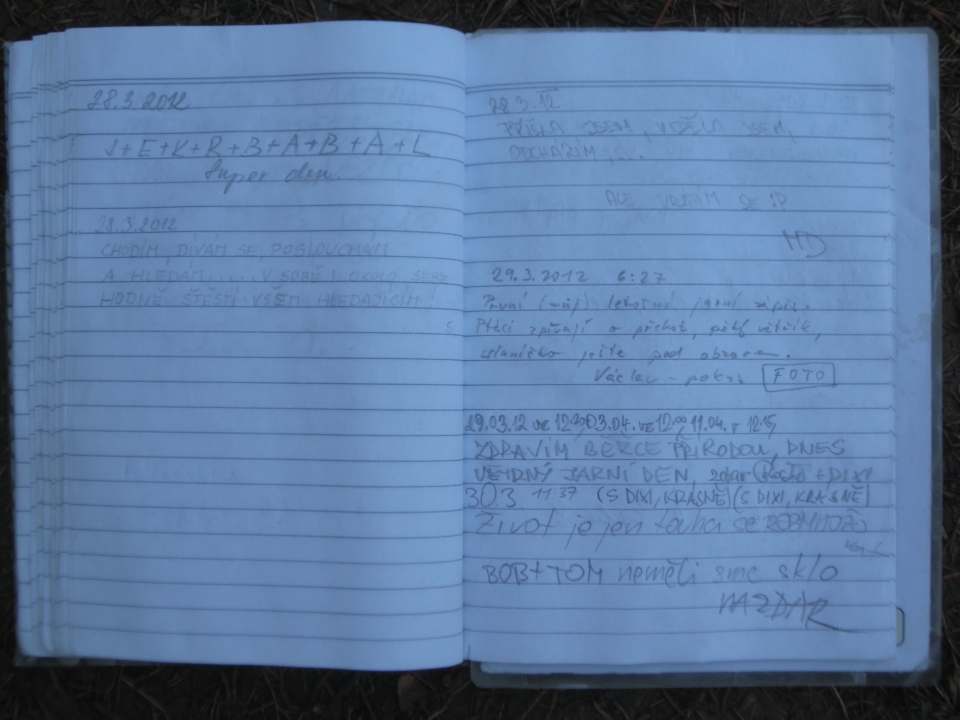 28.3.2012
J+E+K+R+B+A+B+A+L
Super den.
28.3.2012
CHODÍM, DÍVÁM SE, POSLOUCHÁM
A HLEDÁM .... V SOBĚ I OKOLO SEBE
HODNĚ ŠTĚSTÍ VŠEM HLEDAJÍCÍM!
28.3.12
PŘIŠLA JSEM, VIDĚLA JSEM,
ODCHÁZÍM ...
ALE VRÁTÍM SE
MD
29.3.2012 6:27
První (můj) letošní jarní zápis.
Ptáci zpívají o překot, větřík,
sluníčko ještě pod obzorem.
Václav - FOTO
29.03.12 ve 12:30 03.04. ve 12:00, 11.04. v 12:15,
ZDRAVÍM BĚŽCE PŘÍRODOU, DNES
JARNÍ DEN, zdar + DIXI
303. 11:37 (S DIXI, KRÁSNĚ) (S DIXI, KRÁSNĚ)
Život je jen touha se
BOB+TOM neměli sme sklo
NAZDAR